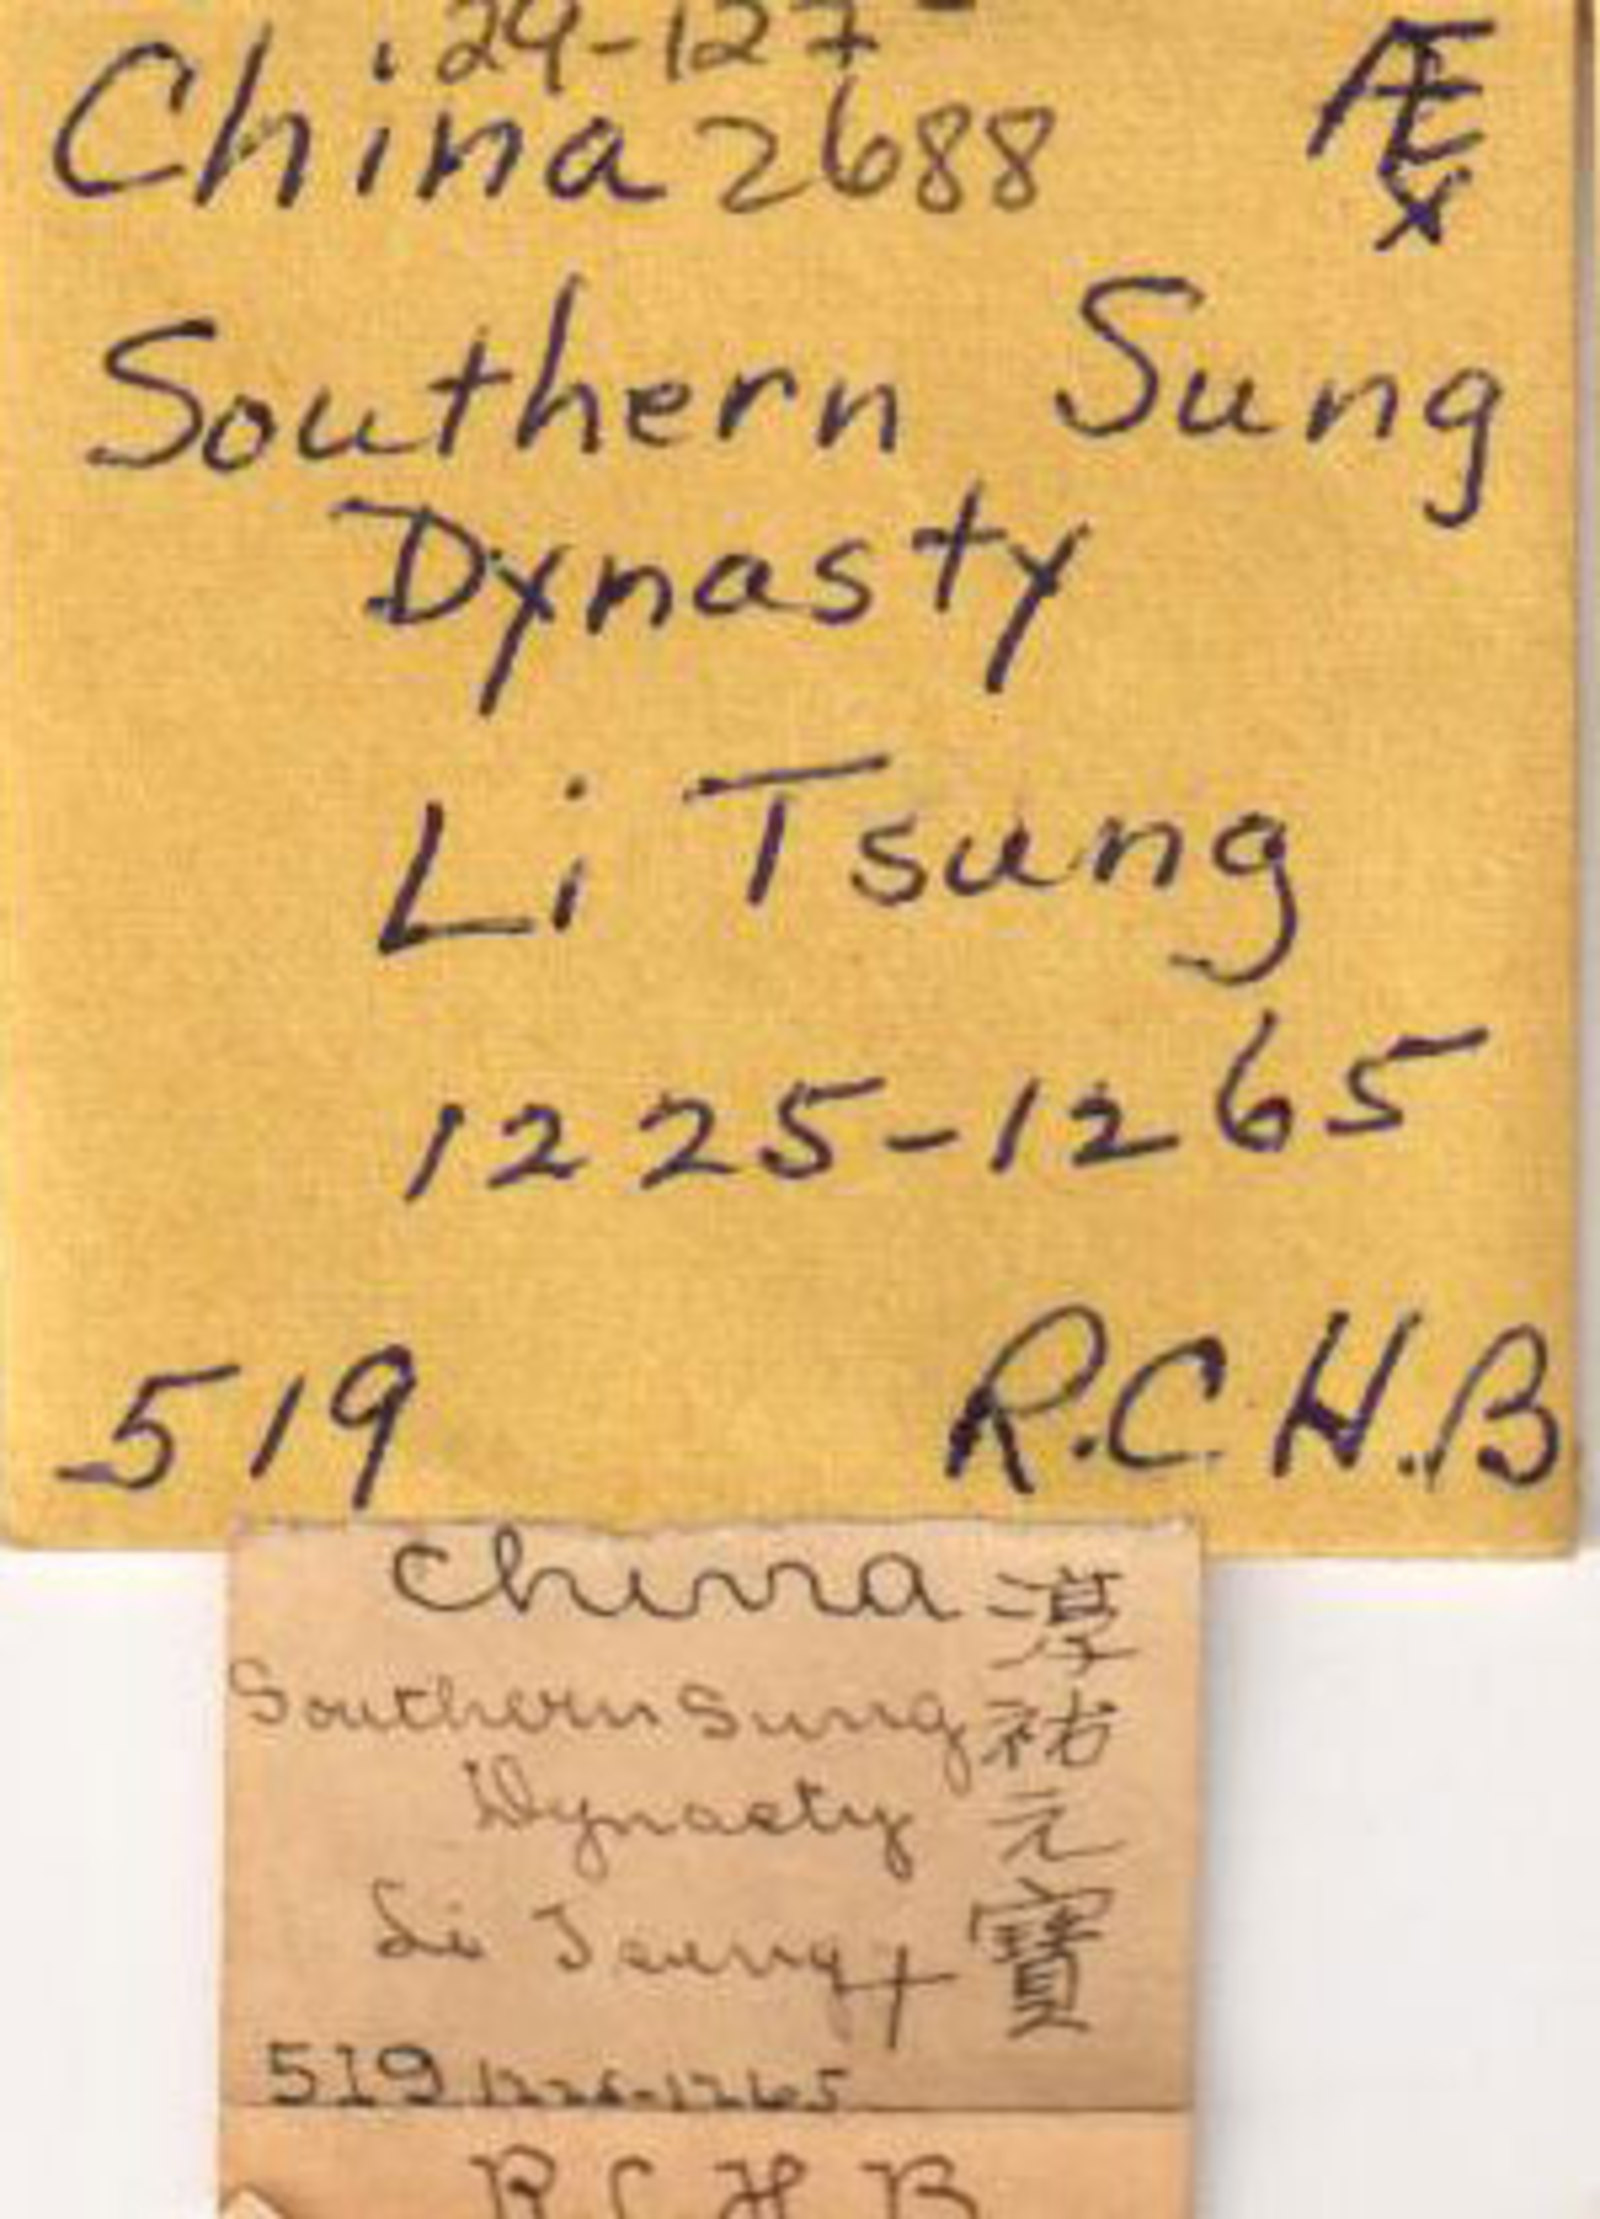 .29-127
China 2688
Æ
x
Southern Sung
Dynasty
Li Tsung
1225-1265
519 R.C.H.B
China
Southern Sung
Dynasty
Li Tsung
519 1225-1265
淳祐元寶
R C H B